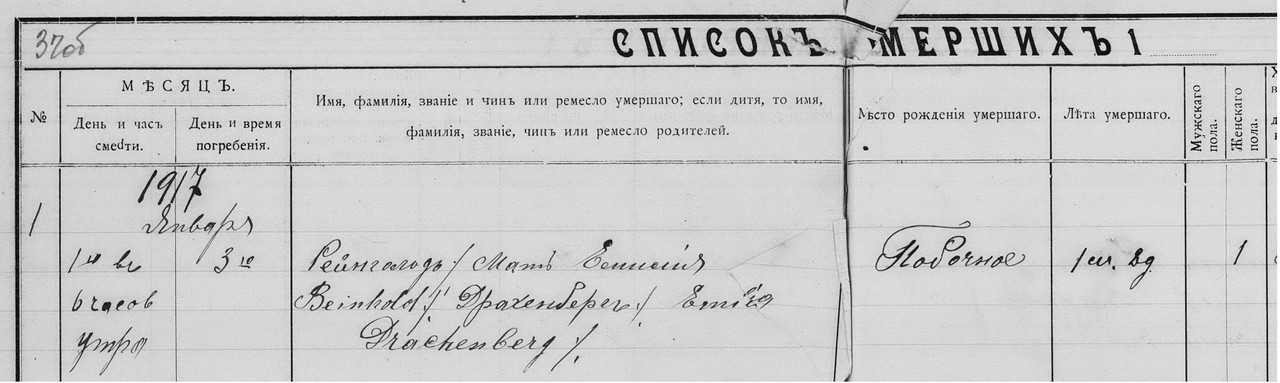 37об
СПИСОКЪ УМЕРШИХЪ 1
№
МѢСЯЦЪ.
День и часъ смерти.
День и время погребенія.
Имя, фамилія, званіе и чинъ или ремесло умершаго; если дитя, то имя,
фамилія, званіе, чинъ или ремесло родителей.
Мѣсто рожденія умершаго.
Лѣта умершаго.
Мужскаго пола.
Женскаго пола.
1917
1 Января
1го въ 3го Рейнгольдъ / Мать Емилія Побочное 1 м. 1
6 часовъ Reinhold / Драхенбергъ / Emilia
утра Drachenberg /.